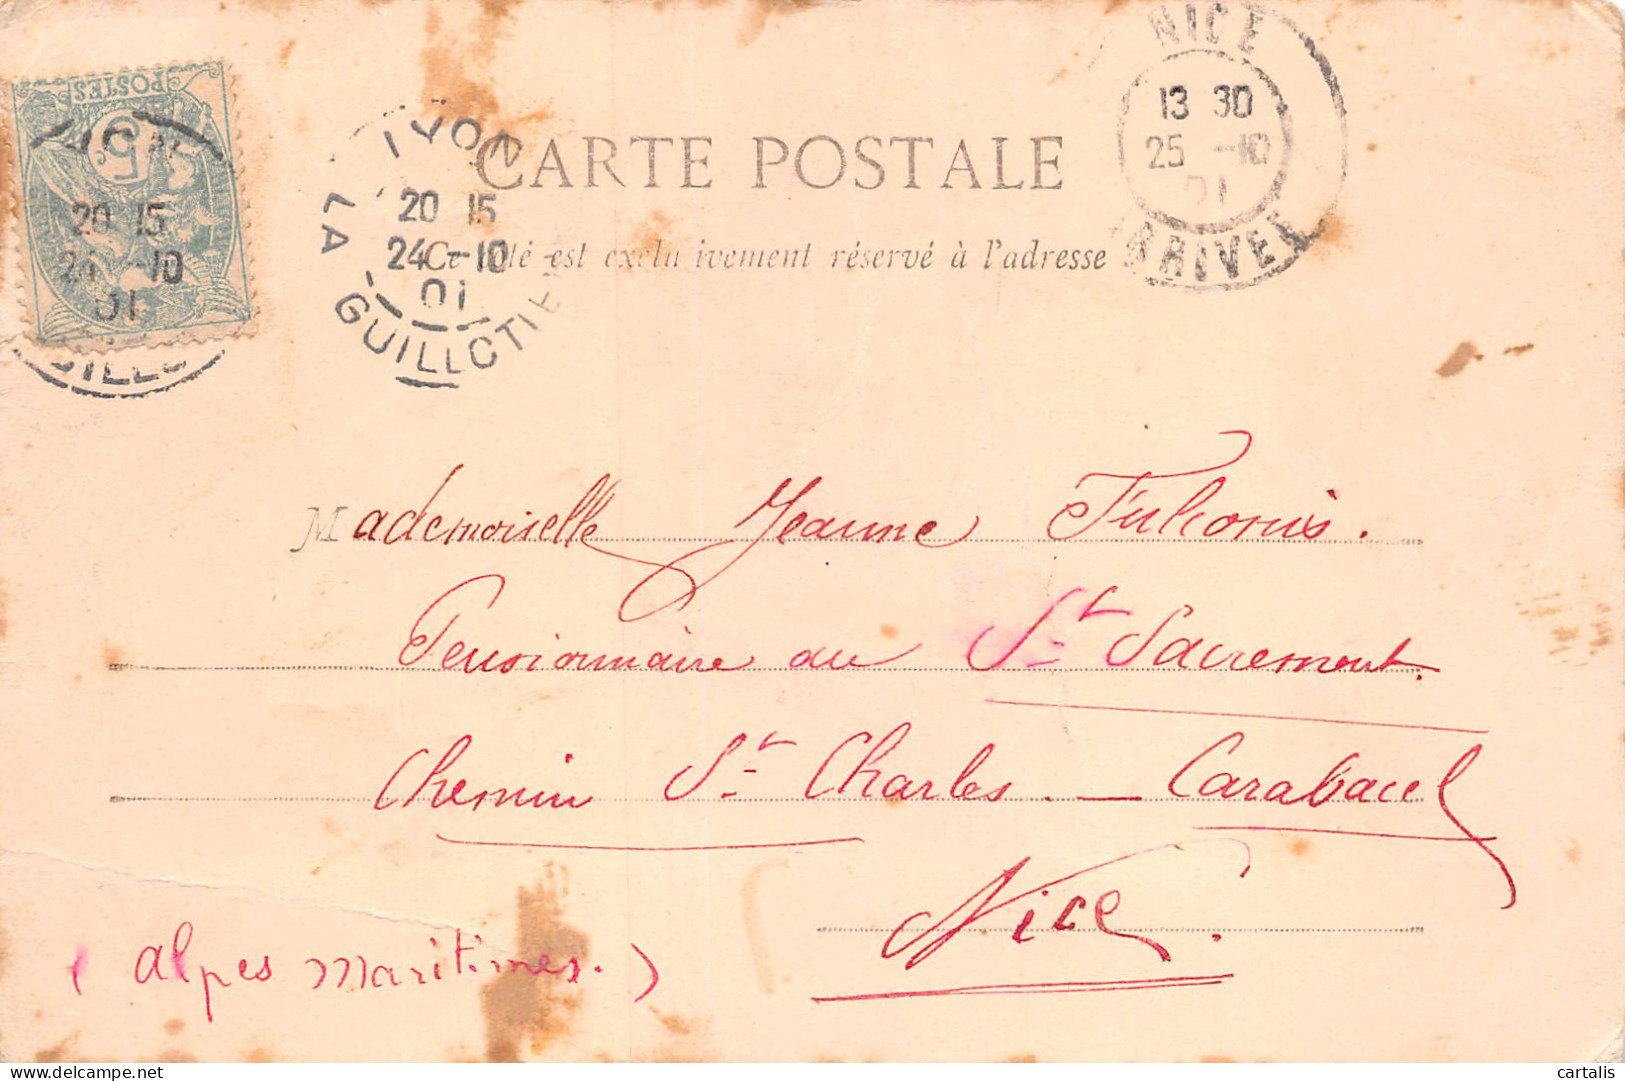 POSTES
5
20 15
24 -10
01
LYON
20 15
24 -10
01
LA GUILLOTIE
NICE
13 30
25 -10
01
ARRIVEE
CARTE POSTALE
Ce côté est exclusivement réservé à l'adresse
Mademoiselle Jeanne Fulconis.
Pensionnaire au St Sacrement.
Chemin St Charles. — Carabacel
Nice.
(Alpes Maritimes.)
cartalis